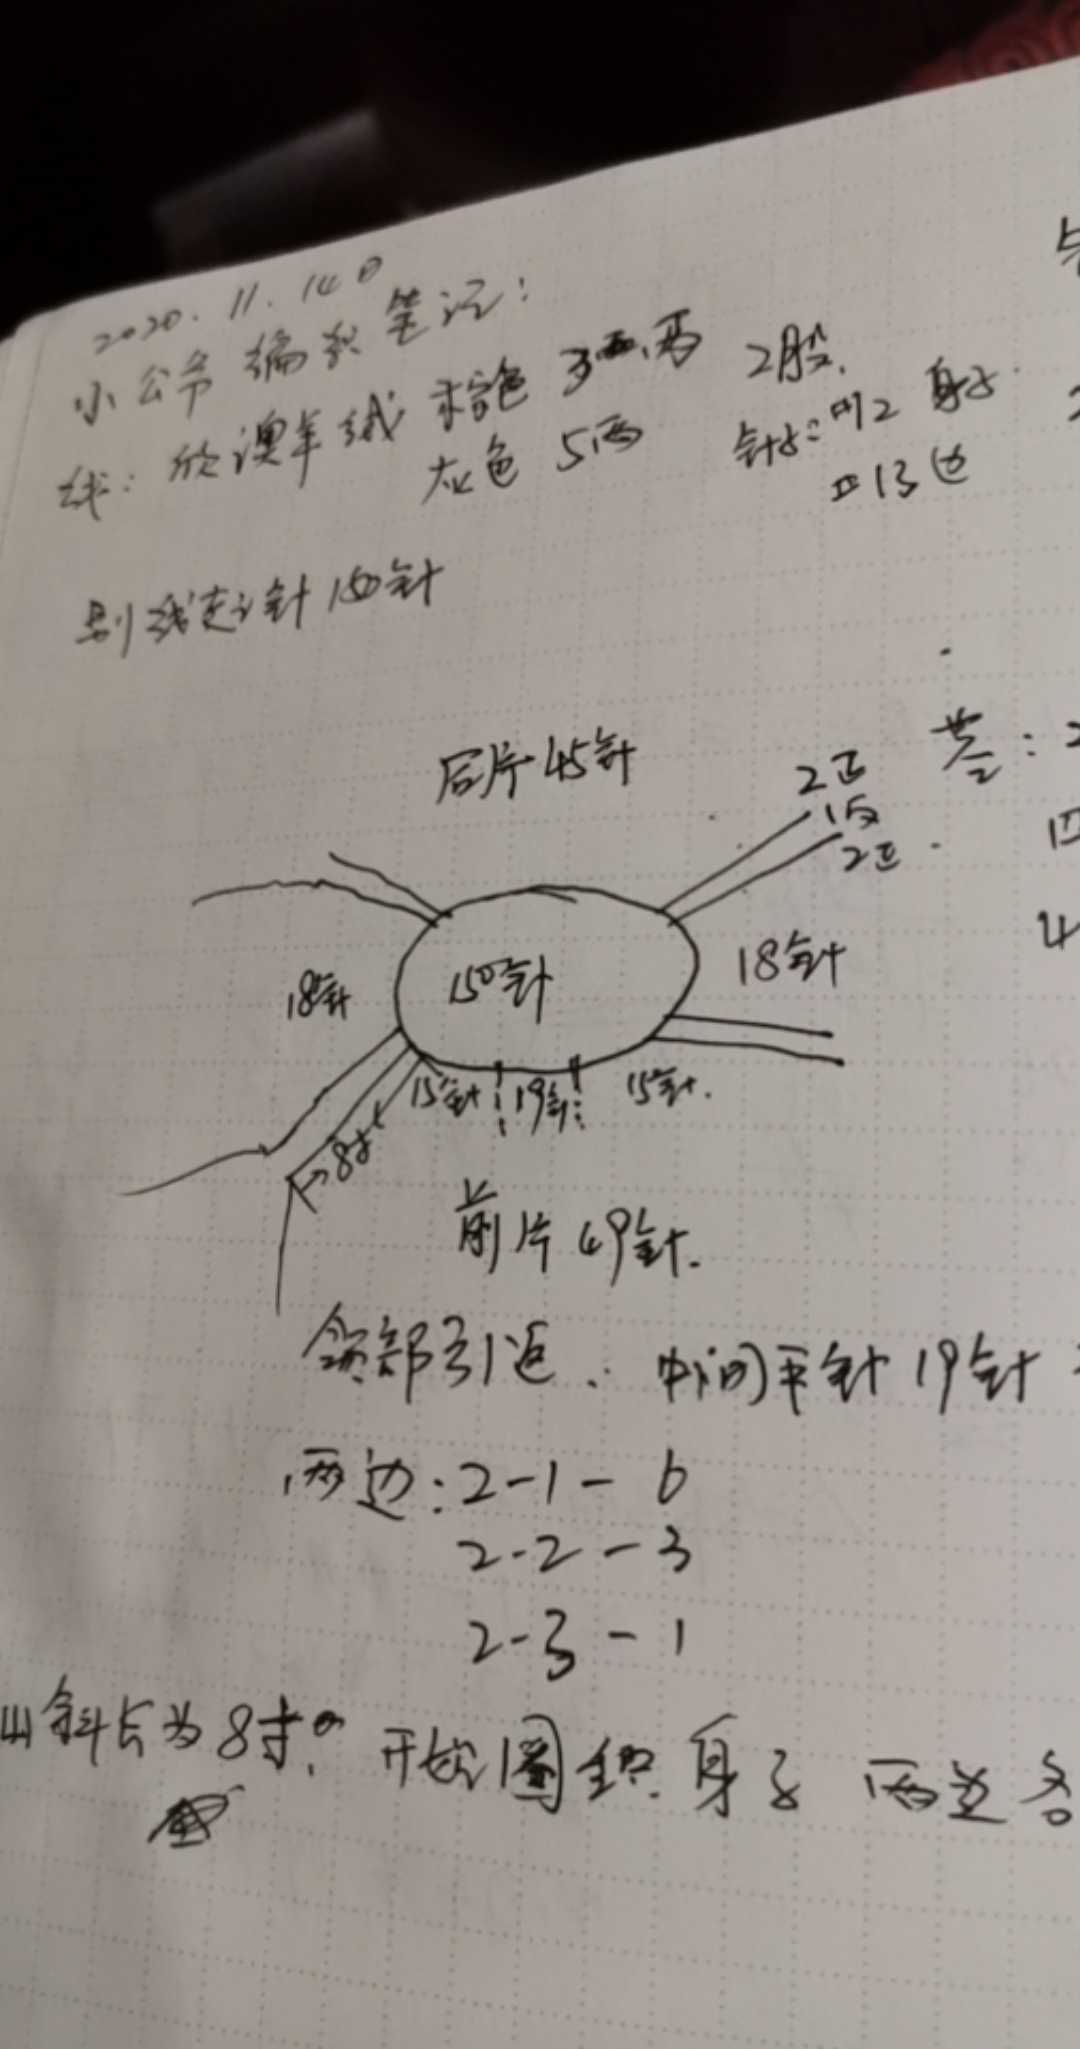 2020.11.14日
小公爷编织笔记:
线: 欣澳羊绒 棕色 3两 2股.
灰色 5两 针: 12 身子
13边
别线起针150针
后片45针
2正
1反
2正
18针
150针
18针
15针 19针 15针.
8寸
前片49针.
领部引返. 中间平针19针
两边: 2-1-6
2-2-3
2-3-1
斜长为8寸. 开始圈织. 身子 两边各